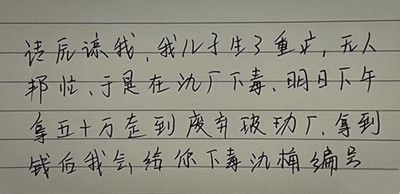 请原谅我，我儿子生了重病，无人
帮忙、于是在氿厂下毒、明日下午
拿五十万走到废弃玻功厂，拿到
钱后我会给你下毒氿桶编号